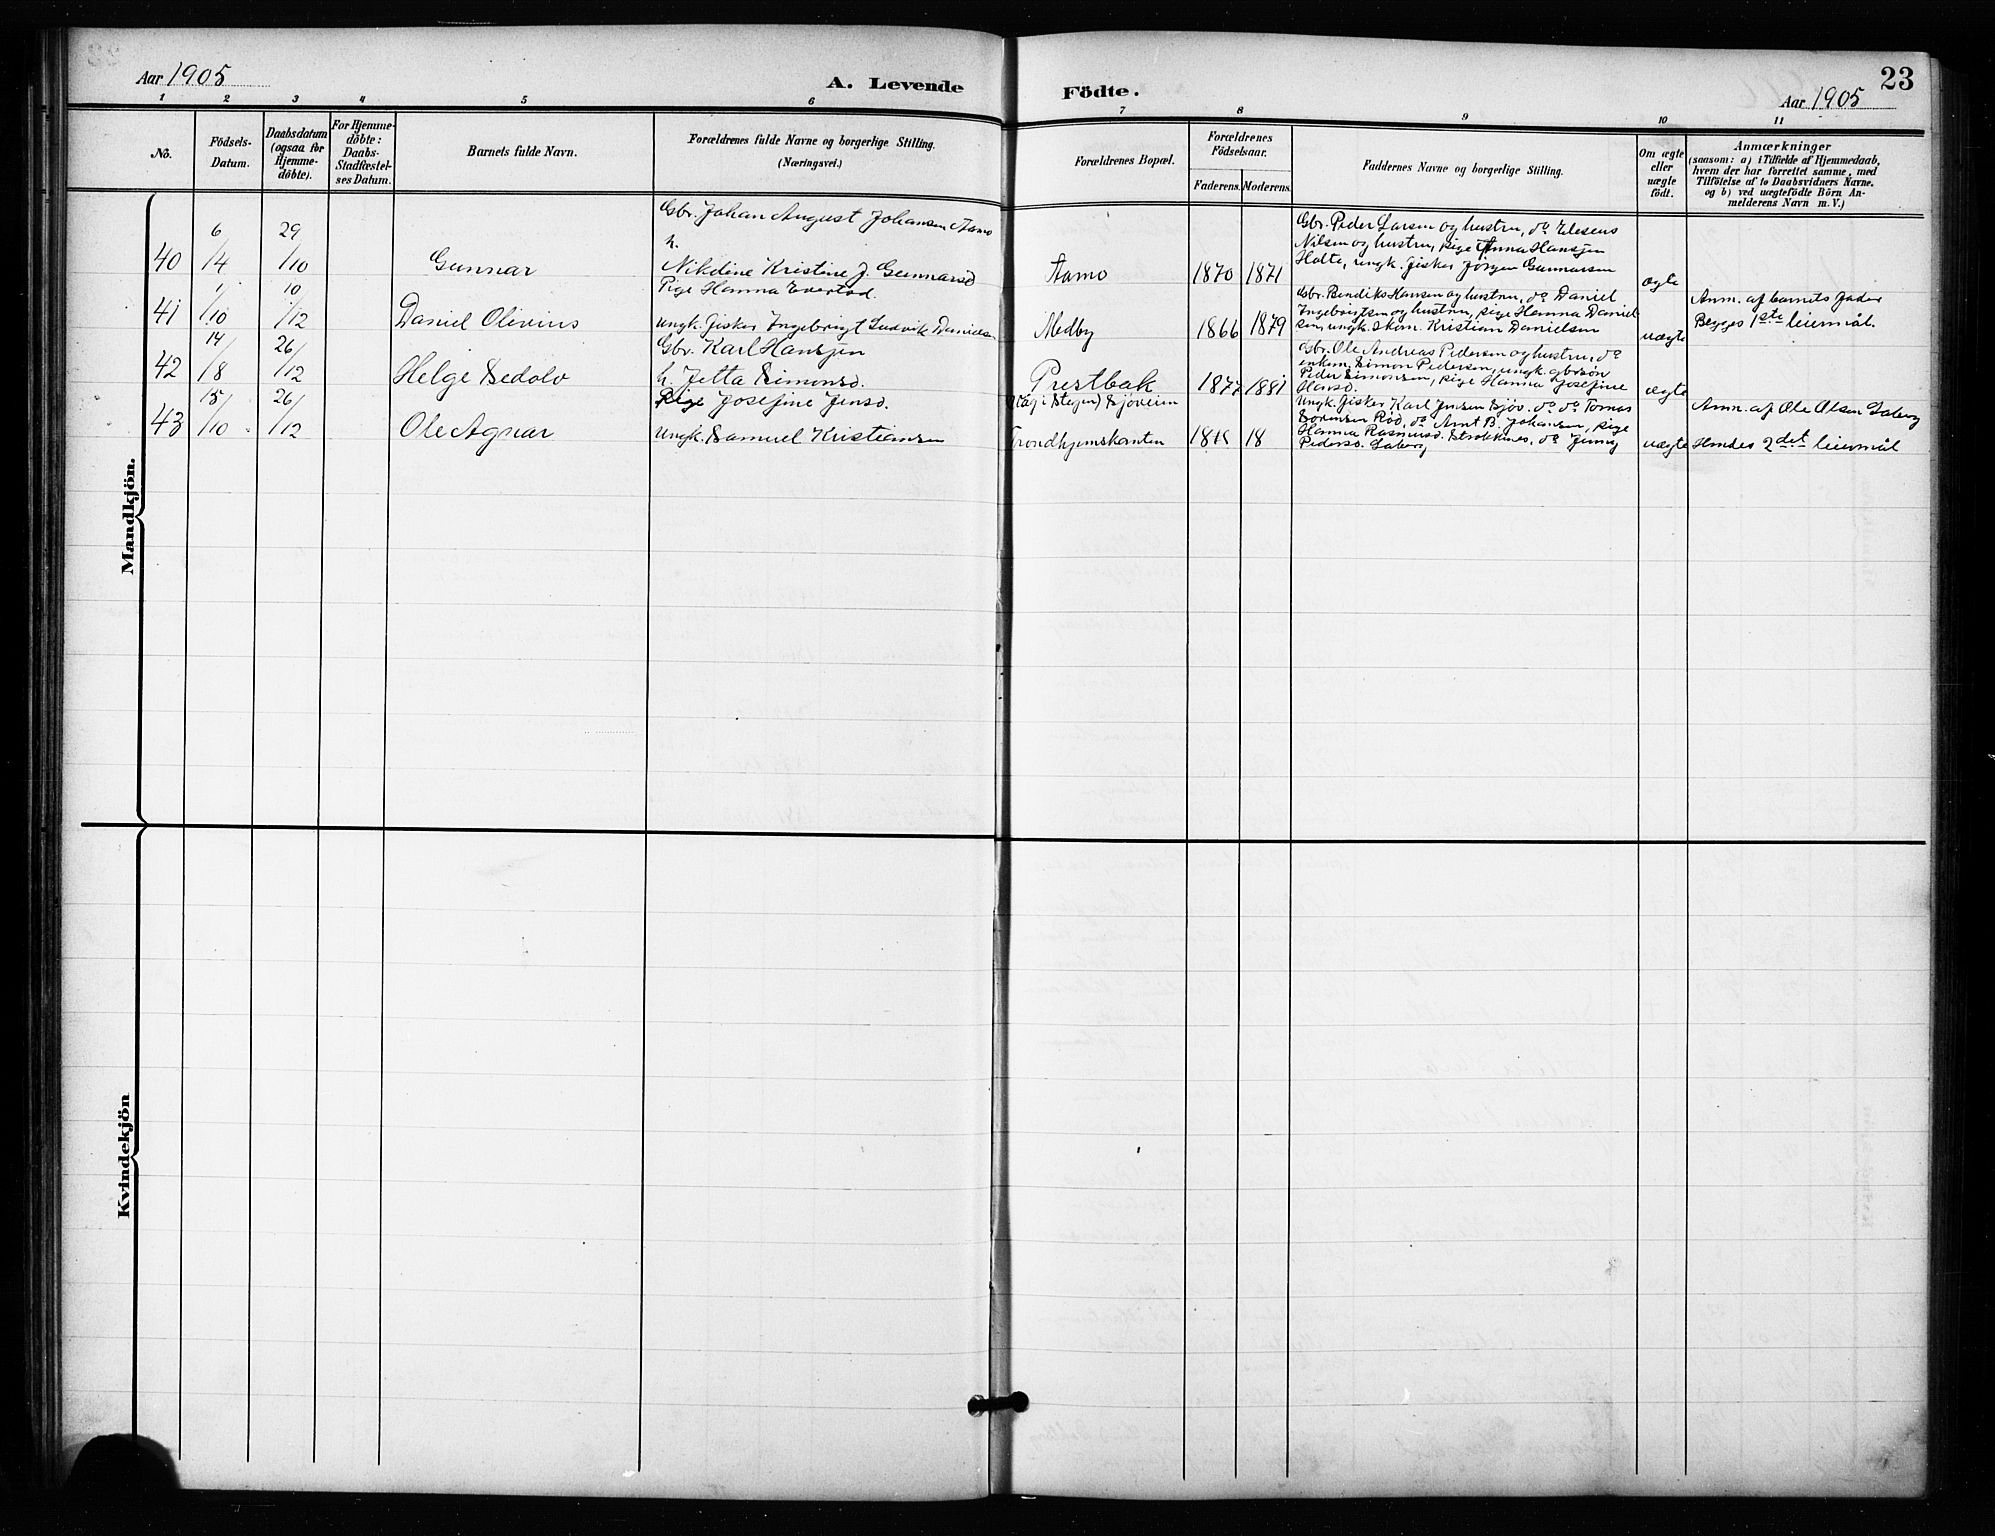 Aar 1905
A. Levende
Födte.
23
Aar 1905
1 2 3 4 5 6 7 8 9 10 11
No.
Födsels-
Datum.
Daabsdatum
(ogsaa for
Hjemme-
döbte).
For Hjemme-
döbte:
Daabs-
Stadfæstel-
ses Datum.
Barnets fulde Navn.
Forældrenes fulde Navne og borgerlige Stilling.
(Næringsvei.)
Forældrenes Bopæl.
Forældrenes
Födselsaar.
Faderens. Moderens.
Faddernes Navne og borgerlige Stilling.
Om ægte
eller
uægte
födt.
Anmærkninger
(saasom: a) i Tilfælde af Hjemmedaab,
hvem der har forrettet samme, med
Tilföielse af to Daabsvidners Navne.
og b) ved uægtefödte Börn An-
melderens Navn m. V.)
Mandkjön.
40
6/4
29/10
Gunnar
Gbr. Johan August Johansen Aamo
h.
Nikoline Kristine J. Gunnarsd
Aamo
1870
1871
Gbr. Peder Larsen og hustru, do Eleseus
Nilsen og hustru, pige Anna Hansen
Holte, ungk. fisker Jörgen Gunnarsen
ægte
41
1/10
10/12
Daniel Olivius
Pige Hanna Evertsd.
Ungk. fisker Ingebrigt Ludvik Daniels
Medby
1866
1879
Gbr. Bendiks Hansen og hustru, do Daniel
Ingebrigtsen og hustru, pige Hanna Daniel
sen, ungk. skom. Kristian Danielsen
uægte
Anm. af barnets fader
Begges 1ste leiermål.
42
14/8
26/12
Helge Sedolv
Gbr. Karl Hansen
h. Jetta Simonsd.
Prestbak
1877
1881
Gbr. Ole Andreas Pedersen og hustru, do
enkem. Simon Pedersen, ungk. gbrsön
Peder Simonsen, pige Hanna Josefine
Hansd.
ægte
43
15/10
26/12
Ole Agnar
Pige Josefine Jensd.
Ungk. Samuel Kristiansen
(Våg i Stegen) Sjöveien
Trondhjemskanten
18
Ungk. fisker Karl Jensen Sjöv. do do Tomas
Sörensen Röd, do Arnt B. Johansen, pige
Hanna Rasmusd. Strokkenes, do Jenny
Pedersd. Saberg
uægte
Anm. af Ole Olsen Saberg
Hendes 2det leiermål
Kvindekjön